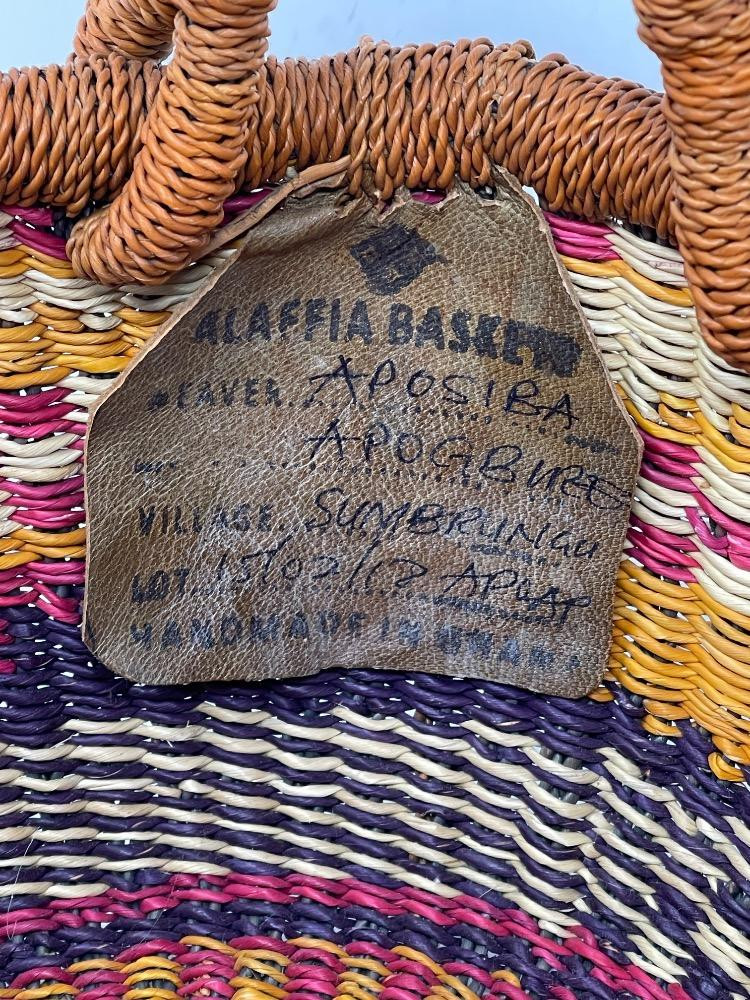 ALAFFIA BASKETS
WEAVER. APOSIBA
APOGBURE
VILLAGE. SUMBRUNGU
LOT. 15/02/12
HANDMADE IN GHANA